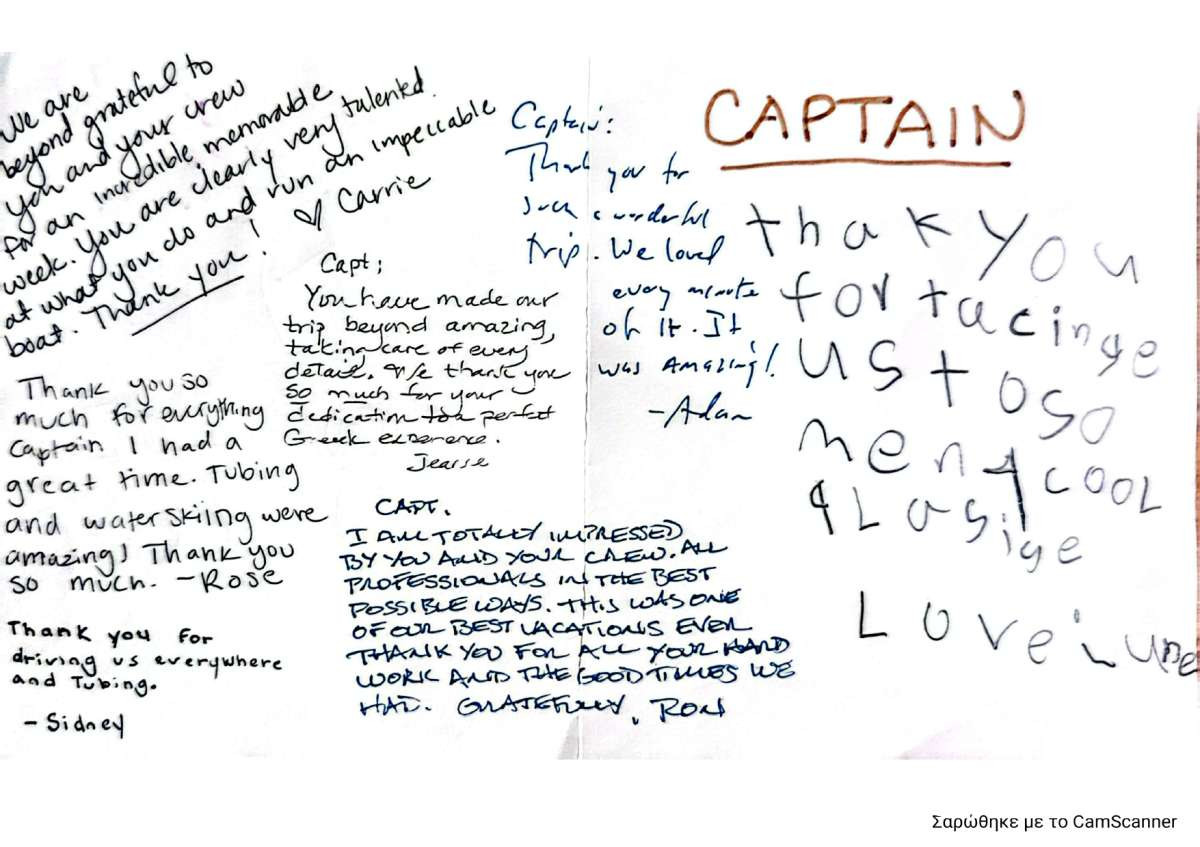 CAPTAIN
We are
beyond grateful to
you and your crew
for an incredible, memorable
week. You are clearly very talented
at what you do and run an impeccable
boat. Thank you! ♡ Carrie
Captain:
Thank you for
such a wonderful
trip. We loved
every minute
of it. It
was Amazing!
-Adam
Capt;
You have made our
trip beyond amazing,
taking care of every
detail. We thank you
so much for your
dedication to a perfect
Greek experience.
Thank you so
much for everything
captain I had a
great time. Tubing
and waterskiing were
amazing! Thank you
so much. -Rose
CAPT.
I AM TOTALLY IMPRESSED
BY YOU AND YOUR CREW. ALL
PROFESSIONALS IN THE BEST
POSSIBLE WAYS. THIS WAS ONE
OF OUR BEST VACATIONS EVER
THANK YOU FOR ALL YOUR HARD
WORK AND THE GOOD TIMES WE
HAD. GRATEFULLY, RON
Thank you for
driving us everywhere
and Tubing.
- Sidney
thak you
for tacinge
us to so
meny cool
Love
Σαρώθηκε με το CamScanner